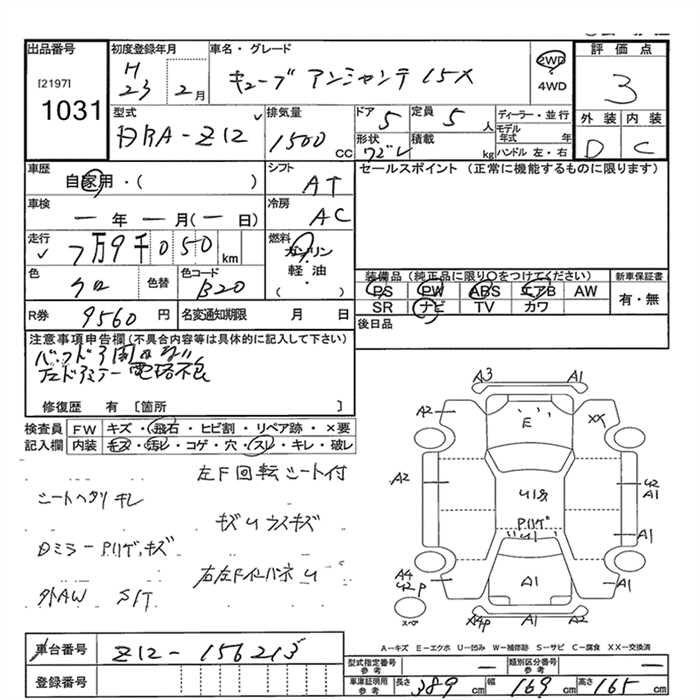 出品番号
[2197]
1031
初度登録年月
H
23 2月
車名・グレード
キューブ アンシャンテ 15X
2WD
4WD
評価点
3
型式
DBA-Z12
排気量
1500 CC
ドア 5
定員 5 人
形状
積載 kg
ディーラー・並行
モデル
年式 年
ハンドル 左・右
外装 内装
D C
車歴
自家用・( )
シフト
AT
セールスポイント (正常に機能するものに限ります)
車検
一年 一月(一日)
冷房
AC
走行
7万9千050 km
燃料
ガソリン
軽油・
( )
色
クロ
色替
色コード
B20
装備品(純正品に限り○をつけてください)
PS PW ABS エアB AW
SR ナビ TV カワ
新車保証書
有・無
R券 9560円
名変通知期限 月 日
後日品
注意事項申告欄(不具合内容等は具体的に記入して下さい)
修復歴 有 [箇所 ]
検査員
記入欄
FW キズ・飛石・ヒビ割・リペア跡・×要
内装 キズ・汚レ・コゲ・穴・スレ・キレ・破レ
左F回転シート付
シートヘタリ キレ
キズU ウスキズ
Dミラー Pハゲ、キズ
外AW S/T
A3 A1
A2 E XX
A2 Uハネ 42
A1
Pハゲ A1
U
A4 A1 A1
42P
スペア
A4P A1 A2
A-キズ E-エクボ U-凹み W-補修跡 S-サビ C-腐食 XX-交換済
車台番号 Z12-156213
登録番号
型式指定番号
参考 一
類別区分番号
参考 一
車庫証明用
参考
長さ 389 cm 幅 169 cm 高さ 165 cm